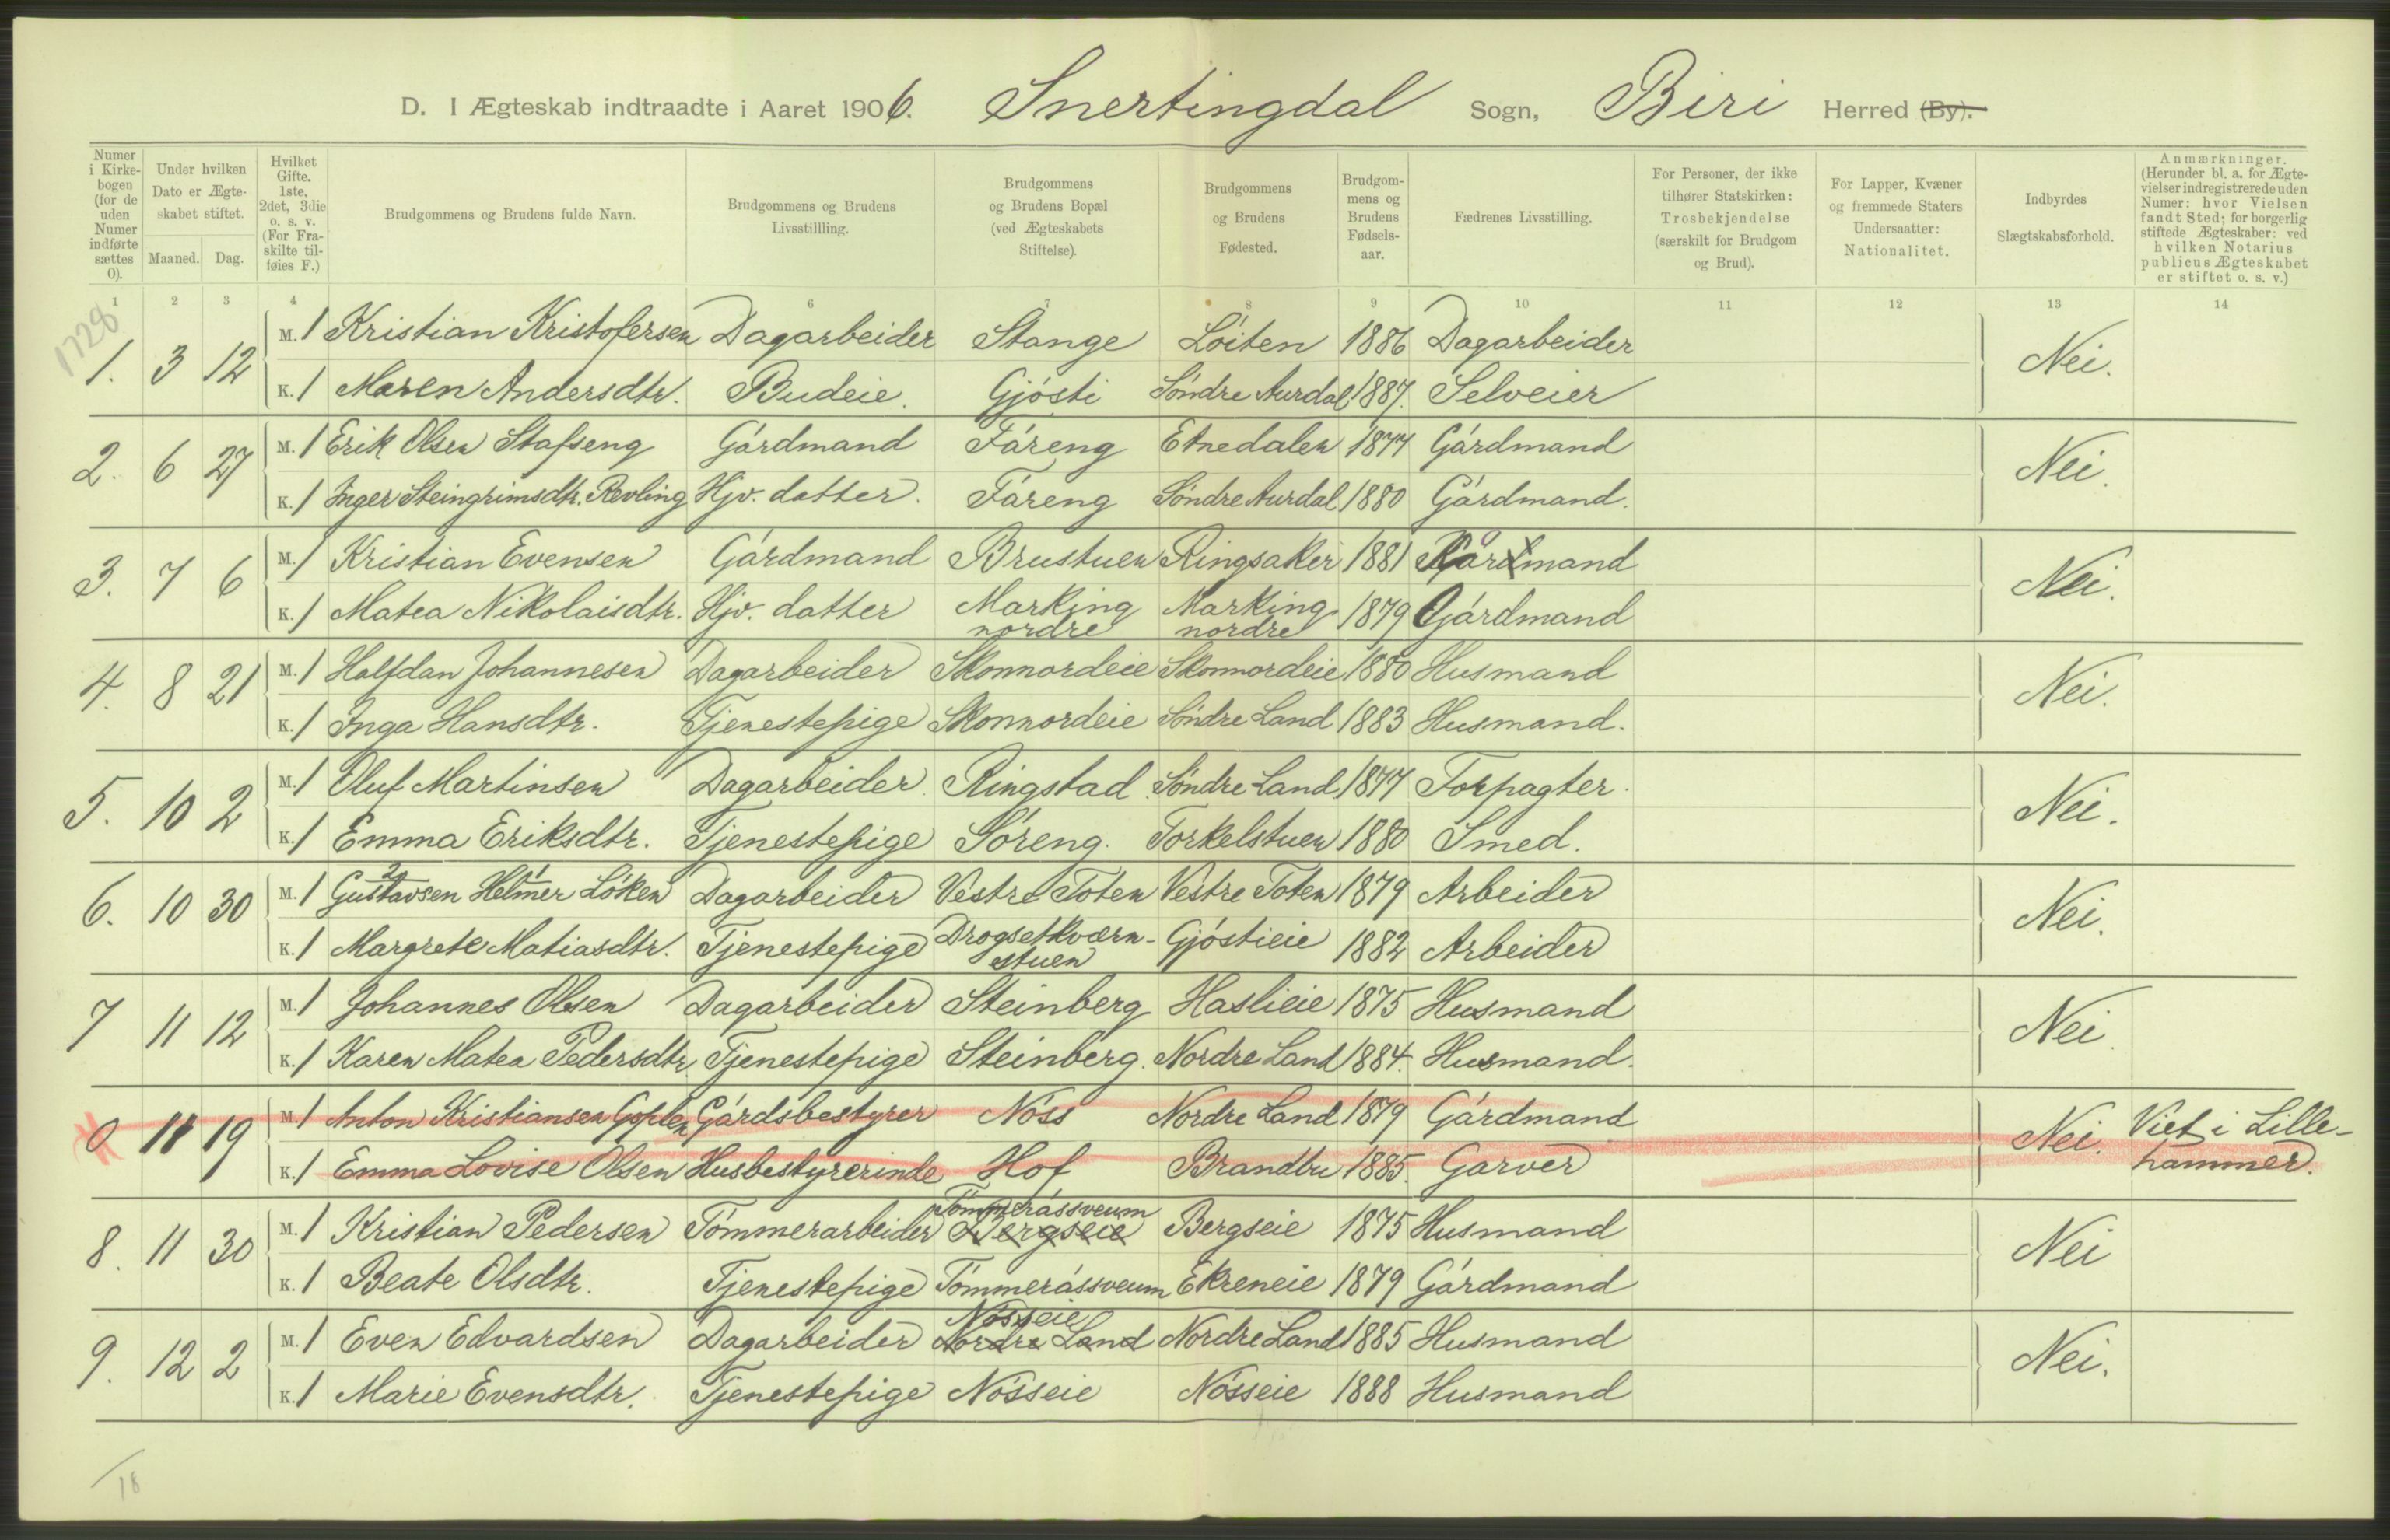 D. I Ægteskab indtraadte i Aaret 1906. Snertingdal Sogn, Biri Herred (By).
Numer i Kirkebogen (for de uden Numer indførte sættes 0).
Under hvilken Dato er Ægteskabet stiftet.
Maaned. Dag.
Hvilket Gifte. 1ste, 2det, 3die o. s. v. (For Fraskilte tilføies F.)
Brudgommens og Brudens fulde Navn.
Brudgommens og Brudens Livsstillling.
Brudgommens og Brudens Bopæl (ved Ægteskabets Stiftelse).
Brudgommens og Brudens Fødested.
Brudgommens og Brudens Fødselsaar.
Fædrenes Livsstilling.
For Personer, der ikke tilhører Statskirken: Trosbekjendelse (særskilt for Brudgom og Brud).
For Lapper, Kvæner og fremmede Staters Undersaatter: Nationalitet.
Indbyrdes Slægtskabsforhold.
Anmærkninger. (Herunder bl. a. for Ægtevielser indregistrerede uden Numer: hvor Vielsen fandt Sted; for borgerlig stiftede Ægteskaber: ved hvilken Notarius publicus Ægteskabet er stiftet o. s. v.)
1 2 3 4 6 7 8 9 10 11 12 13 14
1728
1. 3 12 M. 1 Kristian Kristofersen Dagarbeider Stange Löiten 1886 Dagarbeider Nei.
K. 1 Maren Andersdtr. Budeie. Gjösti Söndre Aurdal 1887. Selveier
2. 6 27 M. 1 Erik Olsen Stafseng Gårdmand Fåreng Etnedalen 1877 Gårdmand Nei.
K. 1 Inger Steingrimsdtr. Revling Hjv. datter. Fåreng Söndre Aurdal 1880 Gårdmand.
3. 7 6 M. 1 Kristian Evensen Gårdmand Brustuen Ringsaker 1881 Nei.
K. 1 Matea Nikolaisdtr. Hjv. datter Marking nordre Marking nordre 1879 Gårdmand
4. 8 21 M. 1 Halfdan Johannesen Dagarbeider Skonnordeie Skonnordeie 1880 Husmand Nei.
K. 1 Inga Hansdtr. Tjenestepige Skonnordeie Söndre Land 1883 Husmand.
5. 10 2 M. 1 Oluf Martinsen Dagarbeider. Ringstad Söndre Land 1877 Forpagter. Nei.
K. 1 Emma Eriksdtr. Tjenestepige Söreng. Torkelstuen 1880 Smed.
6. 10 30 M. 1 Gustavsen 2 Helmer 1 Löken Dagarbeider Vestre Toten Vestre Toten 1879 Arbeider Nei.
K. 1 Margrete Matiasdtr. Tjenestepige Drogsetkværnstuen Gjöstieie 1882 Arbeider
7 11 12 M. 1 Johannes Olsen Dagarbeider Steinberg Haslieie 1875 Husmand Nei.
K. 1 Karen Matea Pedersdtr. Tjenestepige Steinberg. Nordre Land 1884. Husmand.
0 11 19 M. 1 Anton Kristiansen Goplen Gårdsbestyrer Nöss Nordre Land 1879 Gårdmand Nei. Viet i Lillehammer.
K. 1 Emma Lovise Olsen Husbestyrerinde Hof Brandbu 1885. Garver
8. 11 30 M. 1 Kristian Pedersen Tömmerarbeider Tömmeråssveum Bergseie Bergseie 1875 Husmand Nei
K. 1 Beate Olsdtr. Tjenestepige Tömmeråssveum Ekreneie 1879 Gårdmand
9. 12 2 M. 1 Even Edvardsen Dagarbeider Nösseie Nordre Land Nordre Land 1885 Husmand Nei.
K. 1 Marie Evensdtr. Tjenestepige Nösseie Nösseie 1888 Husmand
18